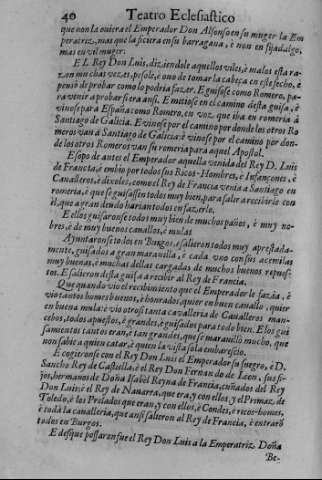 40 Teatro Eclesiastico
que non la ouiera el Emperador Don Alfonso en su muger la Em
peratriz, mas que la ficiera en su barragana, e non en fijadalgo,
mas en vil muger.
E L Rey Don Luis, diziendole aquellos viles, è malos esta ra-
zon muchas vezes, pesole, è ono de tomar la cabeça en este fecho, e
pensò de probar como lo podria fazer. E guisose como Romero, pa-
ra venir a probar si era ansi. E metiose en el camino desta guisa, è
vinose para España como Romero, en voz, que iba en romeria à
Santiago de Galicia. E vinose por el camino por donde los otros Ro
meros van à Santiago de Galicia: è vinose por el camino por don-
de los otros Romeros van su romeria para aquel Apostol.
E sopo de antes el Emperador aquella venida del Rey D. Luis
de Francia, è embio por todos sus Ricos-Hombres, è Infançones, è
Caualleros, è dixoles, como el Rey de Francia venia à Santiago en
romeria, è que se guisassen todos muy bien, para salir a recibirlo con
èl, que a gran deudo harian todos en fazerlo.
E ellos guisaronse todos muy bien de muchos paños, è muy no-
bres, è de muy buenos cauallos, è mulas
Ayuntaronse todos en Burgos, è salieron todos muy aprestada-
mente, guisados a gran marauilla, è cada vno con sis acemilas
muy buenas, è muchas dellas cargadas de muchos buenos repues-
tos. E salieron desta guisa a recibir al Rey de Francia.
Que quando vio el recibimiento que el Emperador le fazia, è
vio tantos homes buenos, è honrados, quier en buen cauallo, quier
en buena mula: è vio otrosi tanta caualleria de Caualleros man-
cebos, todos apuestos, è grandes, è guisados para todo bien. E los gui
samientos tanto eran, è tan grandes, que se marauillò mucho, que
non sabie a quien catar, è quien la vista sola embarescio.
E cogieronse con el Rey Don Luis el Emperador su suegro, è D.
Sancho Rey de Castiella, è el Rey Don Fernando de Leon, sus fi-
jos, hermanos de Doña Isabel Reyna de Francia, cuñados del Rey
Don Luis: è el Rey de Nauarra, que era, y con ellos, y el Primaz, de
Toledo, è los Prelados que eran, y con ellos, è Condes, è ricos-homes,
è toda la caualleria, que ansi salteron al Rey de Francia, è entrarō
todos en Burgos.
E desque possaron fue el Rey Don Luis a la Emperatriz Doña
Be-